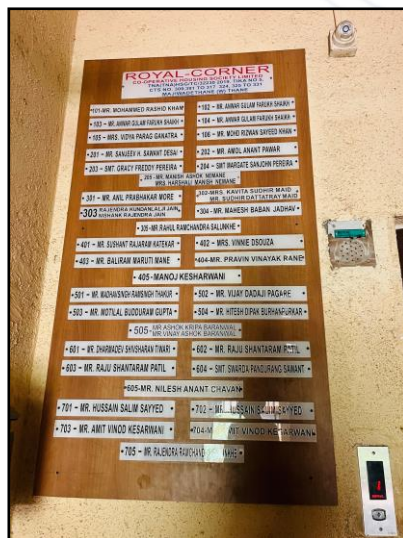 ROYAL-CORNER
CO-OPERATIVE HOUSING SOCIETY LIMITED
101-MR. MOHAMMED RASHID KHAN
102 - MR. ANWAR GULAM FARUKH SHAIKH
103 - MR. ANWAR GULAM FARUKH SHAIKH
104 - MR. ANWAR GULAM FARUKH SHAIKH
105 - MRS. VIDYA PARAG GANATRA
106 - MR. MOHD RIZWAN SAYEED KHAN
201 - MR. SANJEEV H. SAWANT DESAI
202 - MR. AMOL ANANT PAWAR
203 - SMT. GRACY FREDDY PEREIRA
204 - SMT MARGATE SANJOHN PEREIRA
205 - MR. MANISH ASHOK NEMANE
MRS. HARSHALI MANISH NEMANE
301 - MR. ANIL PRABHAKAR MORE
302-MRS. KAVITA SUDHIR MAID
MR. SUDHIR DATTATRAY MAID
303 RAJENDRA KUNDANLALJI JAIN
NISHANK RAJENDRA JAIN
304 - MR. MAHESH BABAN JADHAV
305-MR. RAHUL RAMCHANDRA SALUNKHE
401 - MR. SUSHANT RAJARAM RATEKAR
402 - MRS. VINNIE DSOUZA
403 - MR. BALIRAM MARUTI MANE
404-MR. PRAVIN VINAYAK RANE
405-MANOJ KESHARWANI
501 - MR. MADHAVSINGH RAMSINGH THAKUR
502 - MR. VIJAY DADAJI PAGARE
503 - MR. MOTILAL BUDDURAM GUPTA
504 - MR. HITESH DIPAK BURHANPURKAR
505- MR. ASHOK KRIPA BARANWAL
MR. VINAY ASHOK BARANWAL
601 - MR. DHARMADEV SHIVSHARAN TIWARI
602 - MR. RAJU SHANTARAM PATIL
603 - MR. RAJU SHANTARAM PATIL
604 - SMT. SWARDA PANDURANG SAWANT
605-MR. NILESH ANANT CHAVAN
701 - MR. HUSSAIN SALIM SAYYED
702 - HUSSAIN SALIM SAYYED
703 - MR. AMIT VINOD KESARWANI
704 AMIT VINOD KESARWANI
705 - MR. RAJENDRA